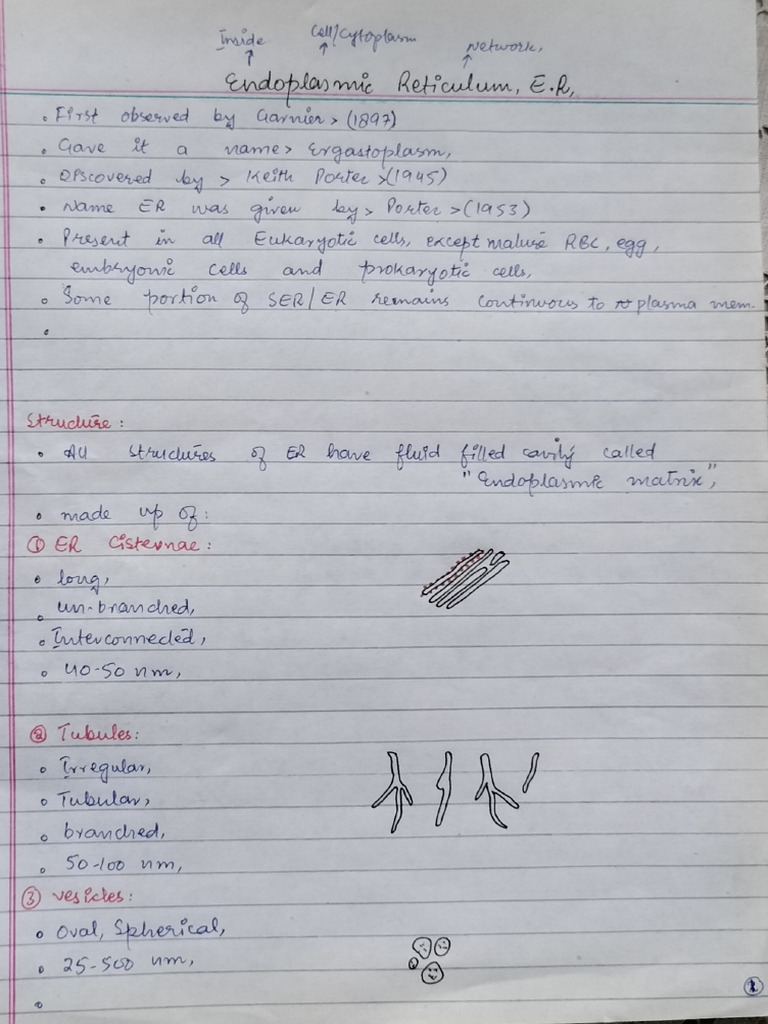 Inside Cell/Cytoplasm Network,
Endoplasmic Reticulum, E.R,
• First observed by Garnier > (1897)
• Gave it a name > Ergastoplasm,
• Discovered by > Keith Porter > (1945)
• Name ER was given by > Porter > (1953)
• Present in all Eukaryotic cells, except mature RBC, egg,
embryonic cells and prokaryotic cells,
• Some portion of SER/ER remains continuous to plasma mem.
•
Structure:
• All structures of ER have fluid filled cavity called
"Endoplasmic matrix",
• made up of:
① ER Cisternae:
• long,
• un-branched,
• Interconnected,
• 40-50 nm,
② Tubules:
• Irregular,
• Tubular,
• branched,
• 50-100 nm,
③ vesicles:
• Oval, Spherical,
• 25-500 nm,
•